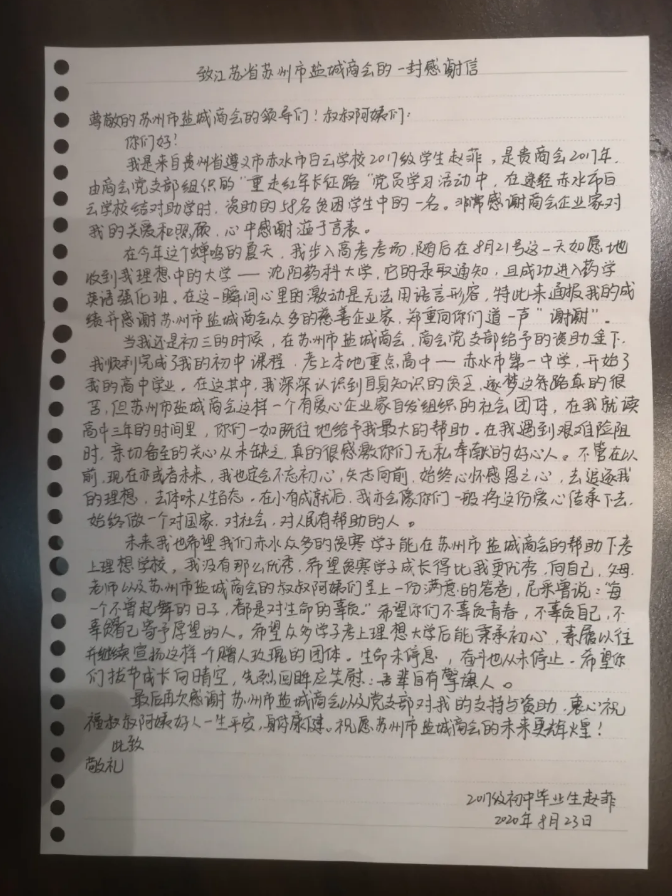 致江苏省苏州市盐城商会的一封感谢信
尊敬的苏州市盐城商会的领导们！叔叔阿姨们：
你们好！
我是来自贵州省遵义市赤水市白云学校2017级学生赵菲，是贵商会2017年，
由商会党支部组织的“重走红军长征路”党员学习活动中，在途经赤水市白
云学校结对助学时，资助的58名贫困学生中的一名。非常感谢商会企业家对
我的关爱和照顾，心中感谢溢于言表。
在今年这个蝉鸣的夏天，我步入高考考场，随后在8月21号这一天如愿地
收到我理想中的大学——沈阳药科大学，它的录取通知，且成功进入药学
英语强化班。在这一瞬间心里的激动是无法用语言形容，特此来通报我的成
绩并感谢苏州市盐城商会众多的慈善企业家，郑重向你们道一声“谢谢”。
当我还是初三的时候，在苏州市盐城商会，商会党支部给予的资助金下，
我顺利完成了我的初中课程，考上本地重点高中——赤水市第一中学，开始了
我的高中学业。在这其中，我深深认识到自身知识的贫乏，逐梦这条路真的很
苦，但苏州市盐城商会这样一个有爱心企业家自发组织的社会团体，在我就读
高中三年的时间里，你们一如既往地给予我最大的帮助。在我遇到艰难险阻
时，亲切备至的关心从未缺乏，真的很感激你们无私奉献的好心人。不管在以
前，现在亦或者未来，我也定会不忘初心，矢志向前，始终心怀感恩之心，去追逐我
的理想，去体味人生百态。在小有成就后，我亦会像你们一般将这份爱心传承下去，
始终做一个对国家，对社会，对人民有帮助的人。
未来我也希望我们赤水众多的贫寒学子能在苏州市盐城商会的帮助下考
上理想学校。我没有那么优秀，希望贫寒学子成长得比我更优秀，向自己，父母，
老师以及苏州市盐城商会的叔叔阿姨们呈上一份满意的答卷，尼采曾说：“每
一个不曾起舞的日子，都是对生命的辜负。”希望你们不辜负青春，不辜负自己，不
辜负自己寄予厚望的人。希望众多学子考上理想大学后能秉承初心，素履以往
并继续宣扬这样一个赠人玫瑰的团体。生命未停息，奋斗也从未停止。希望你
们拔节成长向晴空，先烈回眸应笑慰：吾辈自有擎旗人。
最后再次感谢苏州市盐城商会以及党支部对我的支持与资助，衷心祝
福叔叔阿姨好人一生平安，身体康健。祝愿苏州市盐城商会的未来更辉煌！
此致
敬礼
2017级初中毕业生赵菲
2020年8月23日